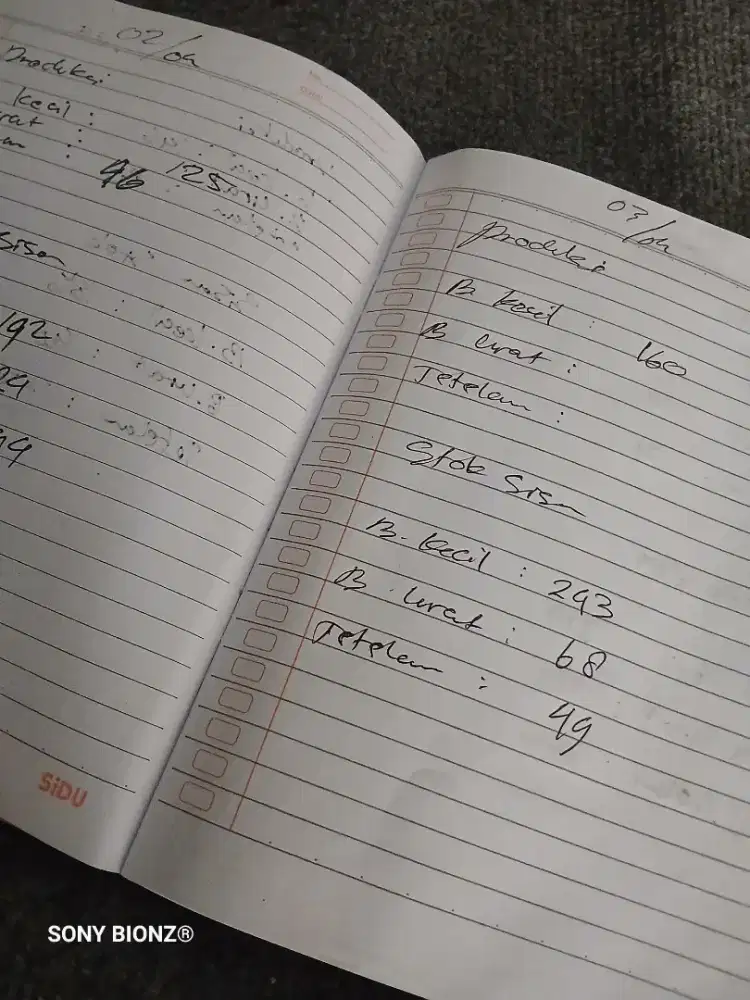 02/04
Produksi
kecil :
rat : 125
: 46
Sisa
192
24
44
SiDU
03/04
Produksi
B kecil : 160
B urat :
Tetelan :
Stok Sisa
B. kecil : 243
B. urat : 68
Tetelan : 49
SONY BIONZ®